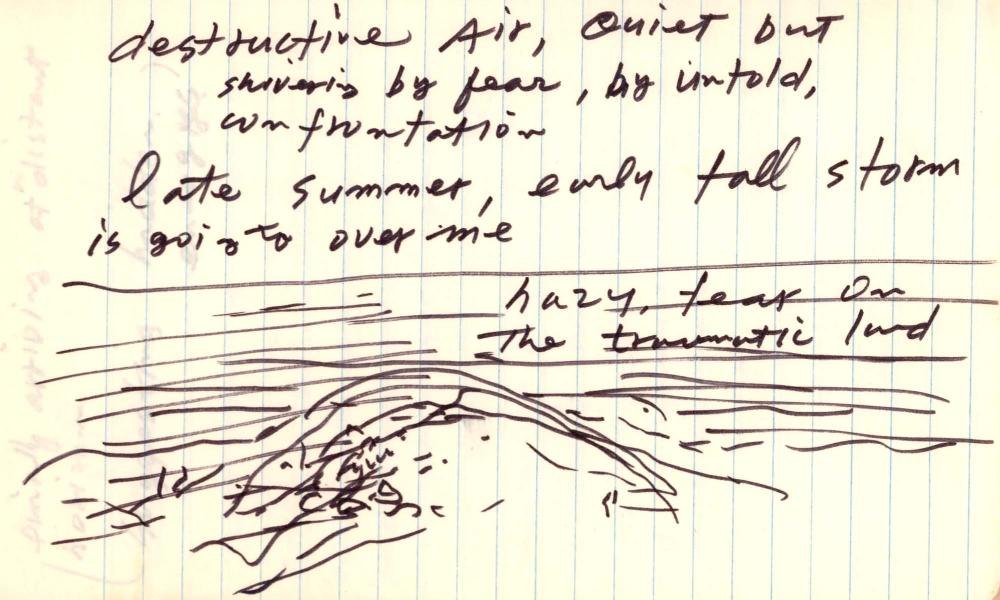 destructive Air, Quiet but
shivering by fear, by untold,
confrontation
late summer, early fall storm
is going to over me
hazy, fear on
The traumatic land